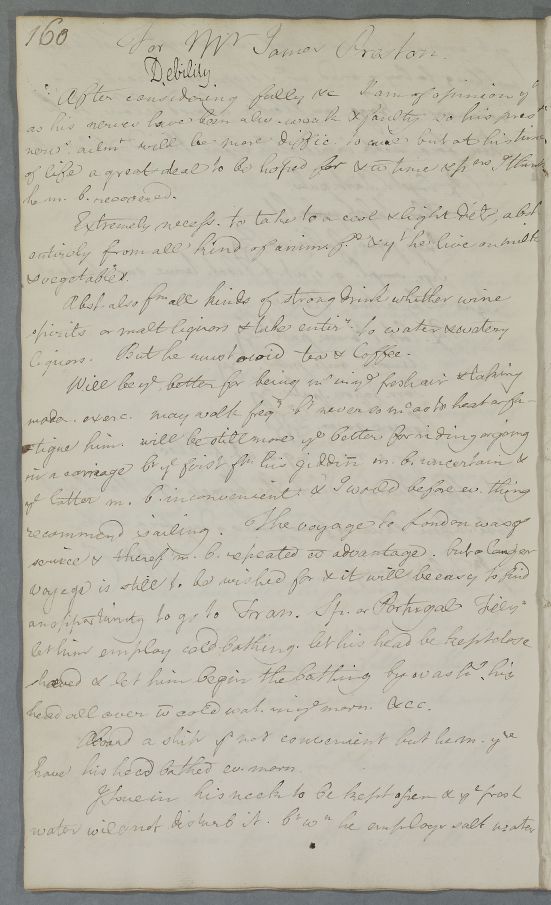 160
For Mr James Preston.
Debility
After considering fully &c I am of opinion yt
as his nerves have been alw. weak & faulty so his pres
nerv. ailmt will be more diffic. to cure but at his time
of life a great deal to be hoped for & wt time & I think
he m. b. recovered.
Extremely necess. to take to a cool & light diet, abst
entirely from all kind of anim. fd & yt he live on milk
& vegetables.
Abst. also fm all kinds of strong drink whether wine
spirits or malt liquors & take entirly to water & watery
liquors. But he must avoid tea & Coffee.
Will be ye better for being mt in ye fresh air & taking
moder. exerc. may walk freqt bt never so mt as to heat or fa-
tigue him. will be still more ye better for riding or going
in a carriage bt ye first fm his giddin m. b. uncertain &
ye latter m. b. inconvenient. & I would before ev. thing
recommend sailing. The voyage to London was of
service & theref m. b. repeated wt advantage. but a longer
voyage is still t. be wished for & it will be easy to find
an opportunity to go to Fran. Sp. or Portugal
let him employ cold bathing. let his head be kept close
shaved & let him begin the bathing by washg his
head all over wt cold wat. in ye morn. &cc.
Aboard a ship if not convenient but he m. yre
have his head bathed ev. morn.
Issue in his neck to be kept open & ye fresh
water will not disturb it. bt wn he employs salt water